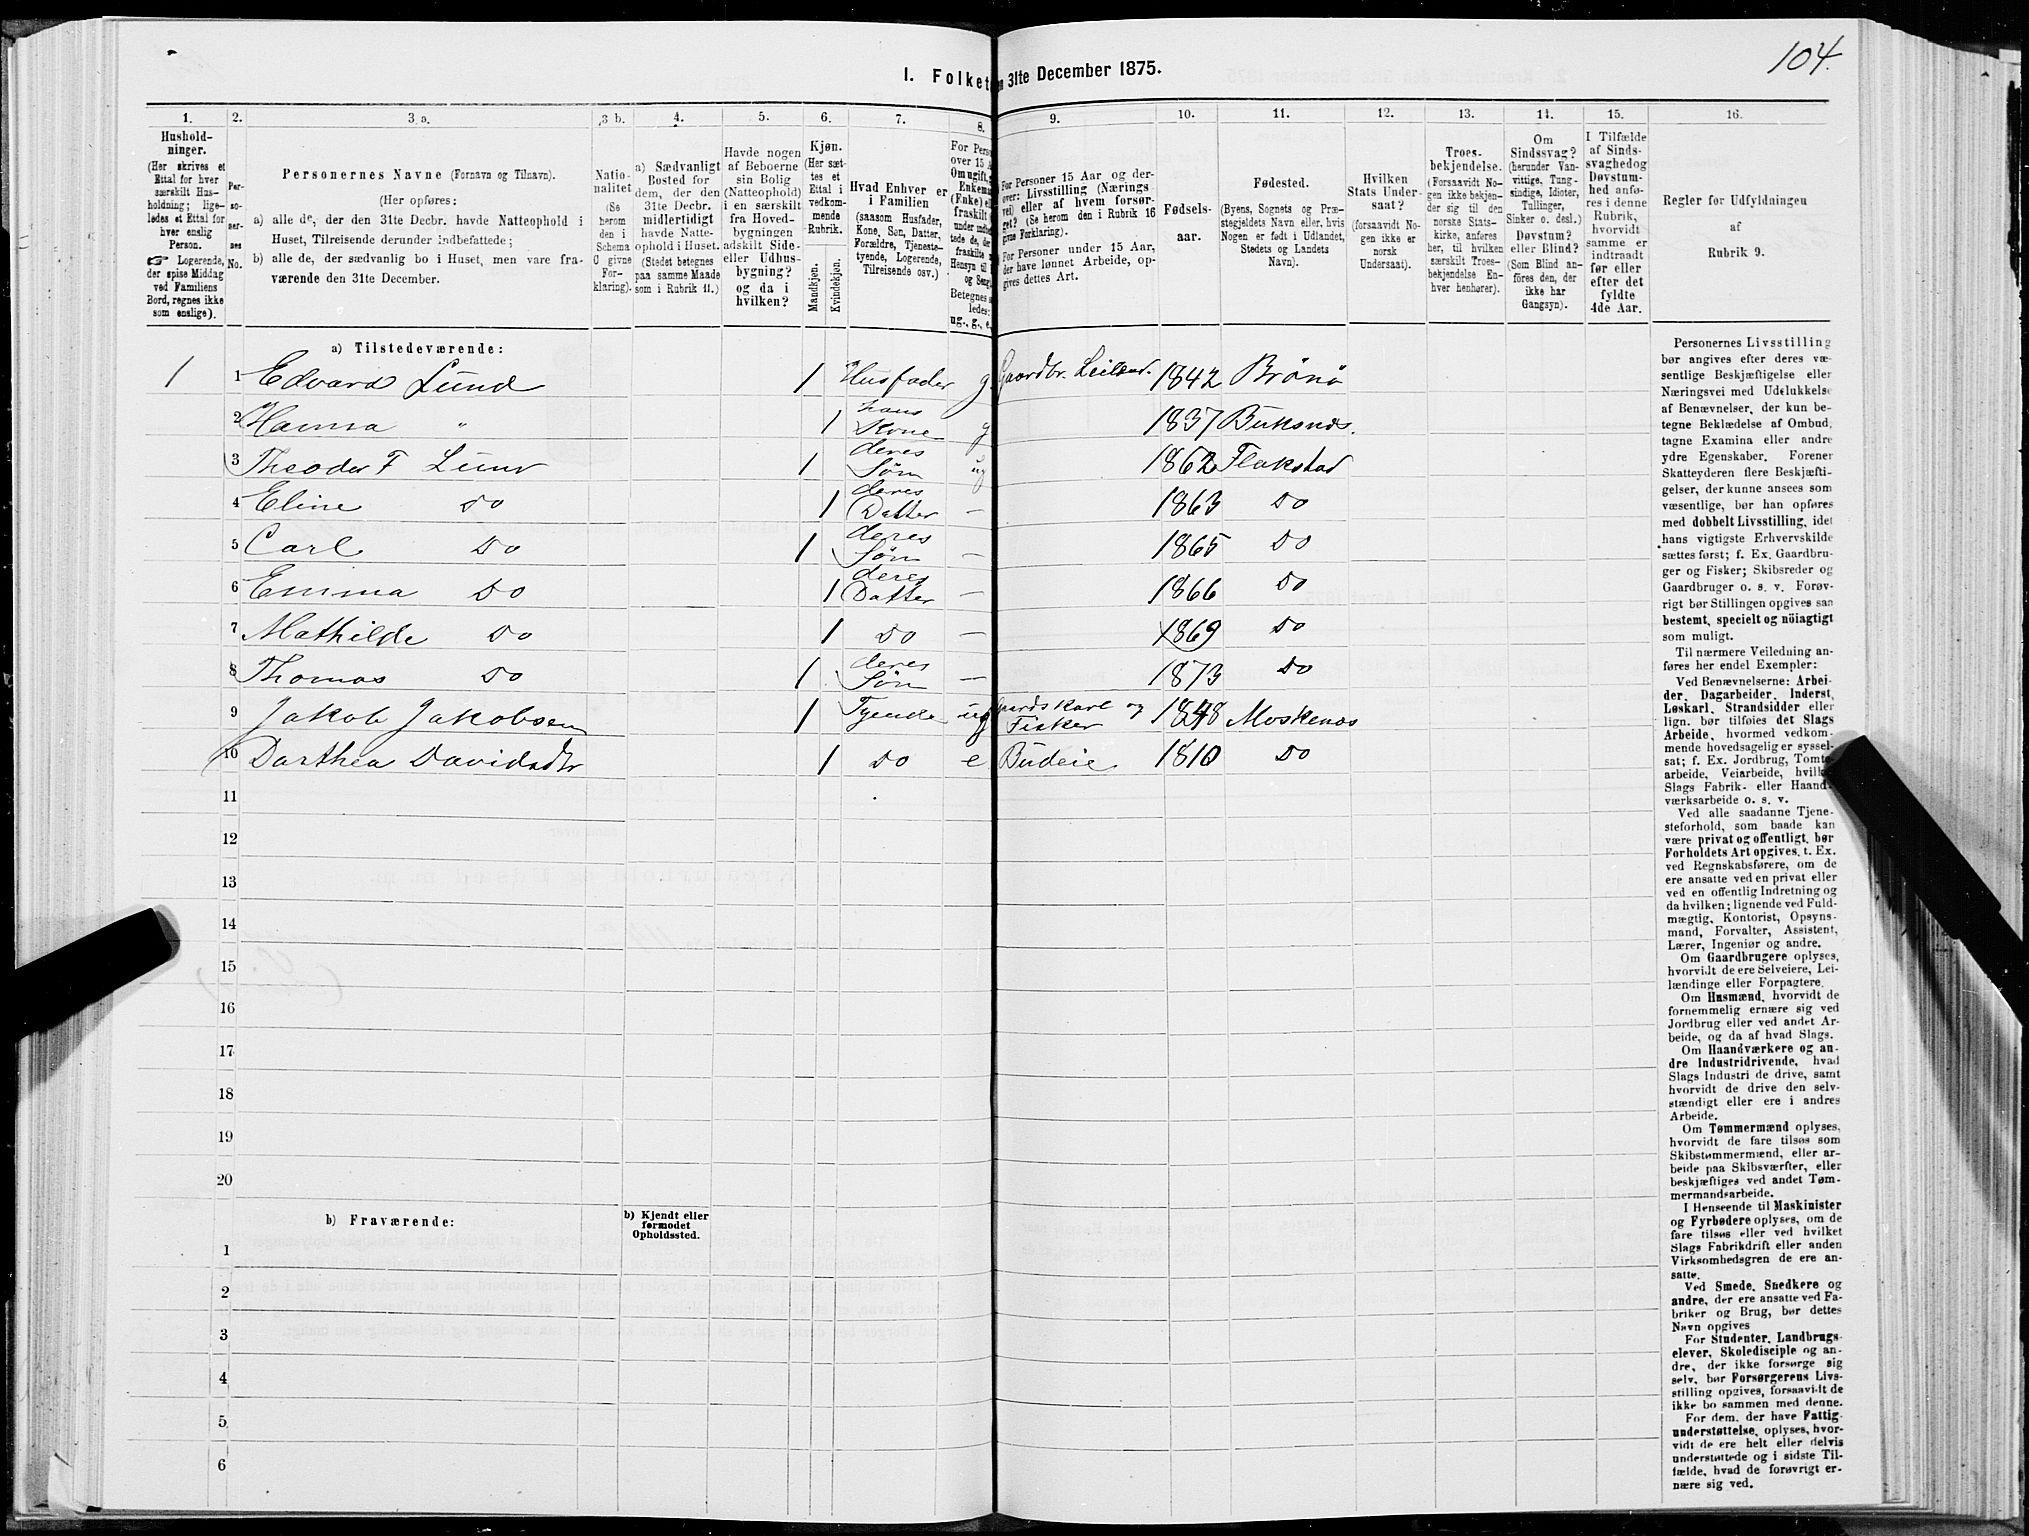 104.
I. Folket
en 31te December 1875.
1. 2. 3 a. 3 b. 4. 5. 6. 7. 8. 9. 10. 11. 12. 13. 14. 15. 16.
Hushold-
ninger.
(Her skrives et
Ettal for hver
særskilt Hus-
holdning; lige-
ledes et Ettal for
hver enslig
Person.
☞ Logerende,
der spise Middag
ved Familiens
Bord, regnes ikke
som enslige).
Per-
so-
ner-
nes
No.
Personernes Navne (Fornavn og Tilnavn).
(Her opføres:
a) alle de, der den 31te Decbr. havde Natteophold i
Huset, Tilreisende derunder indbefattede;
b) alle de, der sædvanlig bo i Huset, men vare fra-
værende den 31te December.
Natio-
nalitet
(Se
herom
den i
Schema
C givne
For-
klaring).
a) Sædvanligt
Bosted for
dem, der den
31te Decbr.
midlertidigt
havde Natte-
ophold i Huset.
(Stedet betegnes
paa samme Maade
som i Rubrik 11.)
Havde nogen
af Beboerne
sin Bolig
(Natteophold)
i en særskilt
fra Hoved-
bygningen
adskilt Side-
eller Udhus-
bygning?
og da i
hvilken?
Kjøn.
(Her sæt-
tes et
Ettal i
vedkom-
mende
Rubrik.
Mandkjøn.
Kvindekjøn.
Hvad Enhver er
i Familien
(saasom Husfader,
Kone, Søn, Datter,
Forældre, Tjeneste-
tyende, Logerende,
Tilreisende osv.)
For Perso
over 15 A
Om ugift,
Enkema
(Enke) el
fraskilt
under indbe
tede de, der
fraskilte
Hensyn til
og Seng
Betegnes
ledes:
ug., g., e.
For Personer 15 Aar og der-
over: Livsstilling (Nærings
vei) eller af hvem forsør-
get? (Se herom den i Rubrik 16
givne Forklaring).
For Personer under 15 Aar,
der have lønnet Arbeide, op-
gives dettes Art.
Fødsels-
aar.
Fødested.
(Byens, Sognets og Præ-
stegjeldets Navn eller, hvis
Nogen er født i Udlandet,
Stedets og Landets
Navn).
Hvilken
Stats Under-
saat?
(forsaavidt No-
gen ikke er
norsk
Undersaat).
Troes-
bekjendelse.
(Forsaavidt No-
gen ikke bekjen-
der sig til den
norske Stats-
kirke, anføres
her, til hvilken
særskilt Troes-
bekjendelse En-
hver henhører).
Om
Sindssvag?
(herunder Van-
vittige, Tung-
sindige, Idioter,
Tullinger,
Sinker o. desl.)
Døvstum?
eller Blind?
(Som Blind an-
føres den, der
ikke har
Gangsyn).
I Tilfælde
af Sinds-
svaghedog
Døvstum-
hed anfø-
res i denne
Rubrik,
hvorvidt
samme er
indtraadt
før eller
efter det
fyldte
4de Aar.
Regler for Udfyldningen
af
Rubrik 9.
a) Tilstedeværende:
1 1 Edvard Lund 1 Husfader g. Gaardbr. Leilænd. 1842 Brönö
2 Hanna " 1 hans Kone g 1837 Buksnæs.
3 Theodor F Lund 1 deres Søn ug 1862 Flakstad
4 Eline Do 1 deres Datter – 1863 Do
5 Carl Do 1 deres Søn – 1865 Do
6 Emma Do 1 deres Datter – 1866 Do
7 Mathilde Do 1 Do – 1869 Do
8 Thomas Do 1 deres Søn – 1873 Do
9 Jakob Jakobsen 1 Tyende ug Gaardskarl og Fisker 1848 Moskenæs
10 Dorthea Davidsdtr 1 Do e Budeie 1810 Do
11
12
13
14
15
16
17
18
19
20
b) Fraværende:
b) Kjendt eller
formodet
Opholdssted.
1
2
3
4
5
6
Personernes Livsstilling
bør angives efter deres væ-
sentlige Beskjæftigelse eller
Næringsvei med Udelukkelse
af Benævnelser, der kun be-
tegne Beklædelse af Ombud,
tagne Examina eller andre
ydre Egenskaber. Forener
Skatteyderen flere Beskjæfti-
gelser, der kunne ansees som
væsentlige, bør han opføres
med dobbelt Livsstilling, idet
hans vigtigste Erhvervskilde
sættes først; f. Ex. Gaardbru-
ger og Fisker; Skibsreder og
Gaardbruger o. s. v. Forøv-
rigt bør Stillingen opgives saa
bestemt, specielt og nöiagtigt
som muligt.
Til nærmere Veiledning an-
føres her endel Exempler:
Ved Benævnelserne: Arbei-
der, Dagarbeider, Inderst,
Løskarl, Strandsidder eller
lign. bør tilføies det Slags
Arbeide, hvormed vedkom-
mende hovedsagelig er syssel-
sat; f. Ex. Jordbrug, Tomte-
arbeide, Veiarbeide, hvilket
Slags Fabrik- eller Haand-
værksarbeide o. s. v.
Ved alle saadanne Tjene-
steforhold, som baade kan
være privat og offentligt, bør
Forholdets Art opgives, t. Ex.
ved Regnskabsførere, om de
ere ansatte ved en privat eller
ved en offentlig Indretning og
da hvilken; lignende ved Fuld-
mægtig, Kontorist, Opsyns-
mand, Forvalter, Assistent,
Lærer, Ingeniør og andre.
Om Gaardbrugere oplyses,
hvorvidt de ere Selveiere, Lei-
lændinge eller Forpagtere.
Om Husmænd, hvorvidt de
fornemmelig ernære sig ved
Jordbrug eller ved andet Ar-
beide, og da af hvad Slags.
Om Haandværkere og an-
dre Industridrivende, hvad
Slags Industri de drive, samt
hvorvidt de drive den selv-
stændigt eller ere i andres
Arbeide.
Om Tømmermænd oplyses,
hvorvidt de fare tilsøs som
Skibstømmermænd, eller ar-
beide paa Skibsværfter, eller
beskjæftiges ved andet Tøm-
mermandsarbeide.
I Henseende til Maskinister
og Fyrbødere oplyses, om de
fare tilsøs eller ved hvilket
Slags Fabrikdrift eller anden
Virksomhedsgren de ere an-
satte.
Ved Smede, Snedkere og
andre, der ere ansatte ved Fa-
briker og Brug, bør dettes
Navn opgives
For Studenter, Landbrugs-
elever, Skoledisciple og an-
dre, der ikke forsørge sig
selv, bør Forsørgerens Livs-
stilling opgives, forsaavidt de
ikke bo sammen med denne.
For dem, der have Fattig-
understøttelse, oplyses, hvor-
vidt de ere helt eller delvis
understøttede og i sidste Til-
fælde, hvad de forøvrigt er-
nære sig ved.